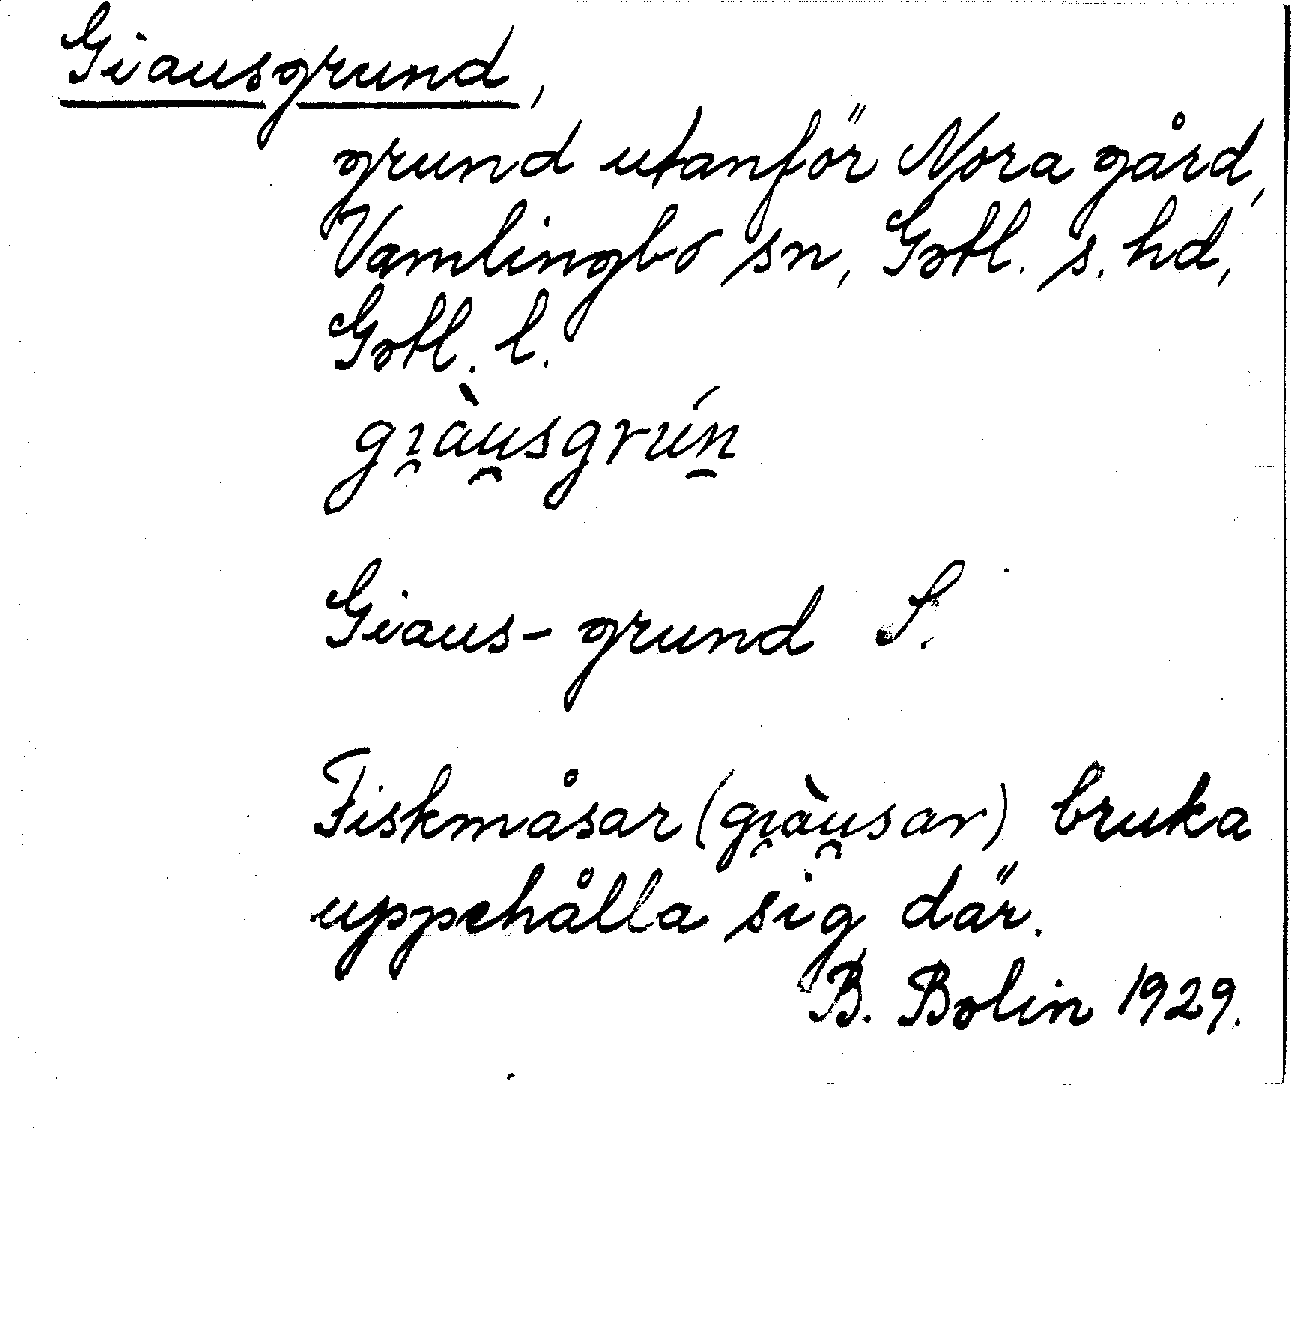 Giausgrund,
grund utanför Nora gård,
Vamlingbo sn, Gotl. s. hd,
Gotl. l.
gı̯àu̯sgrún̯
Giaus-grund S.
Fiskmåsar (gı̯àu̯sar) bruka
uppehålla sig där.
B. Bolin 1929.